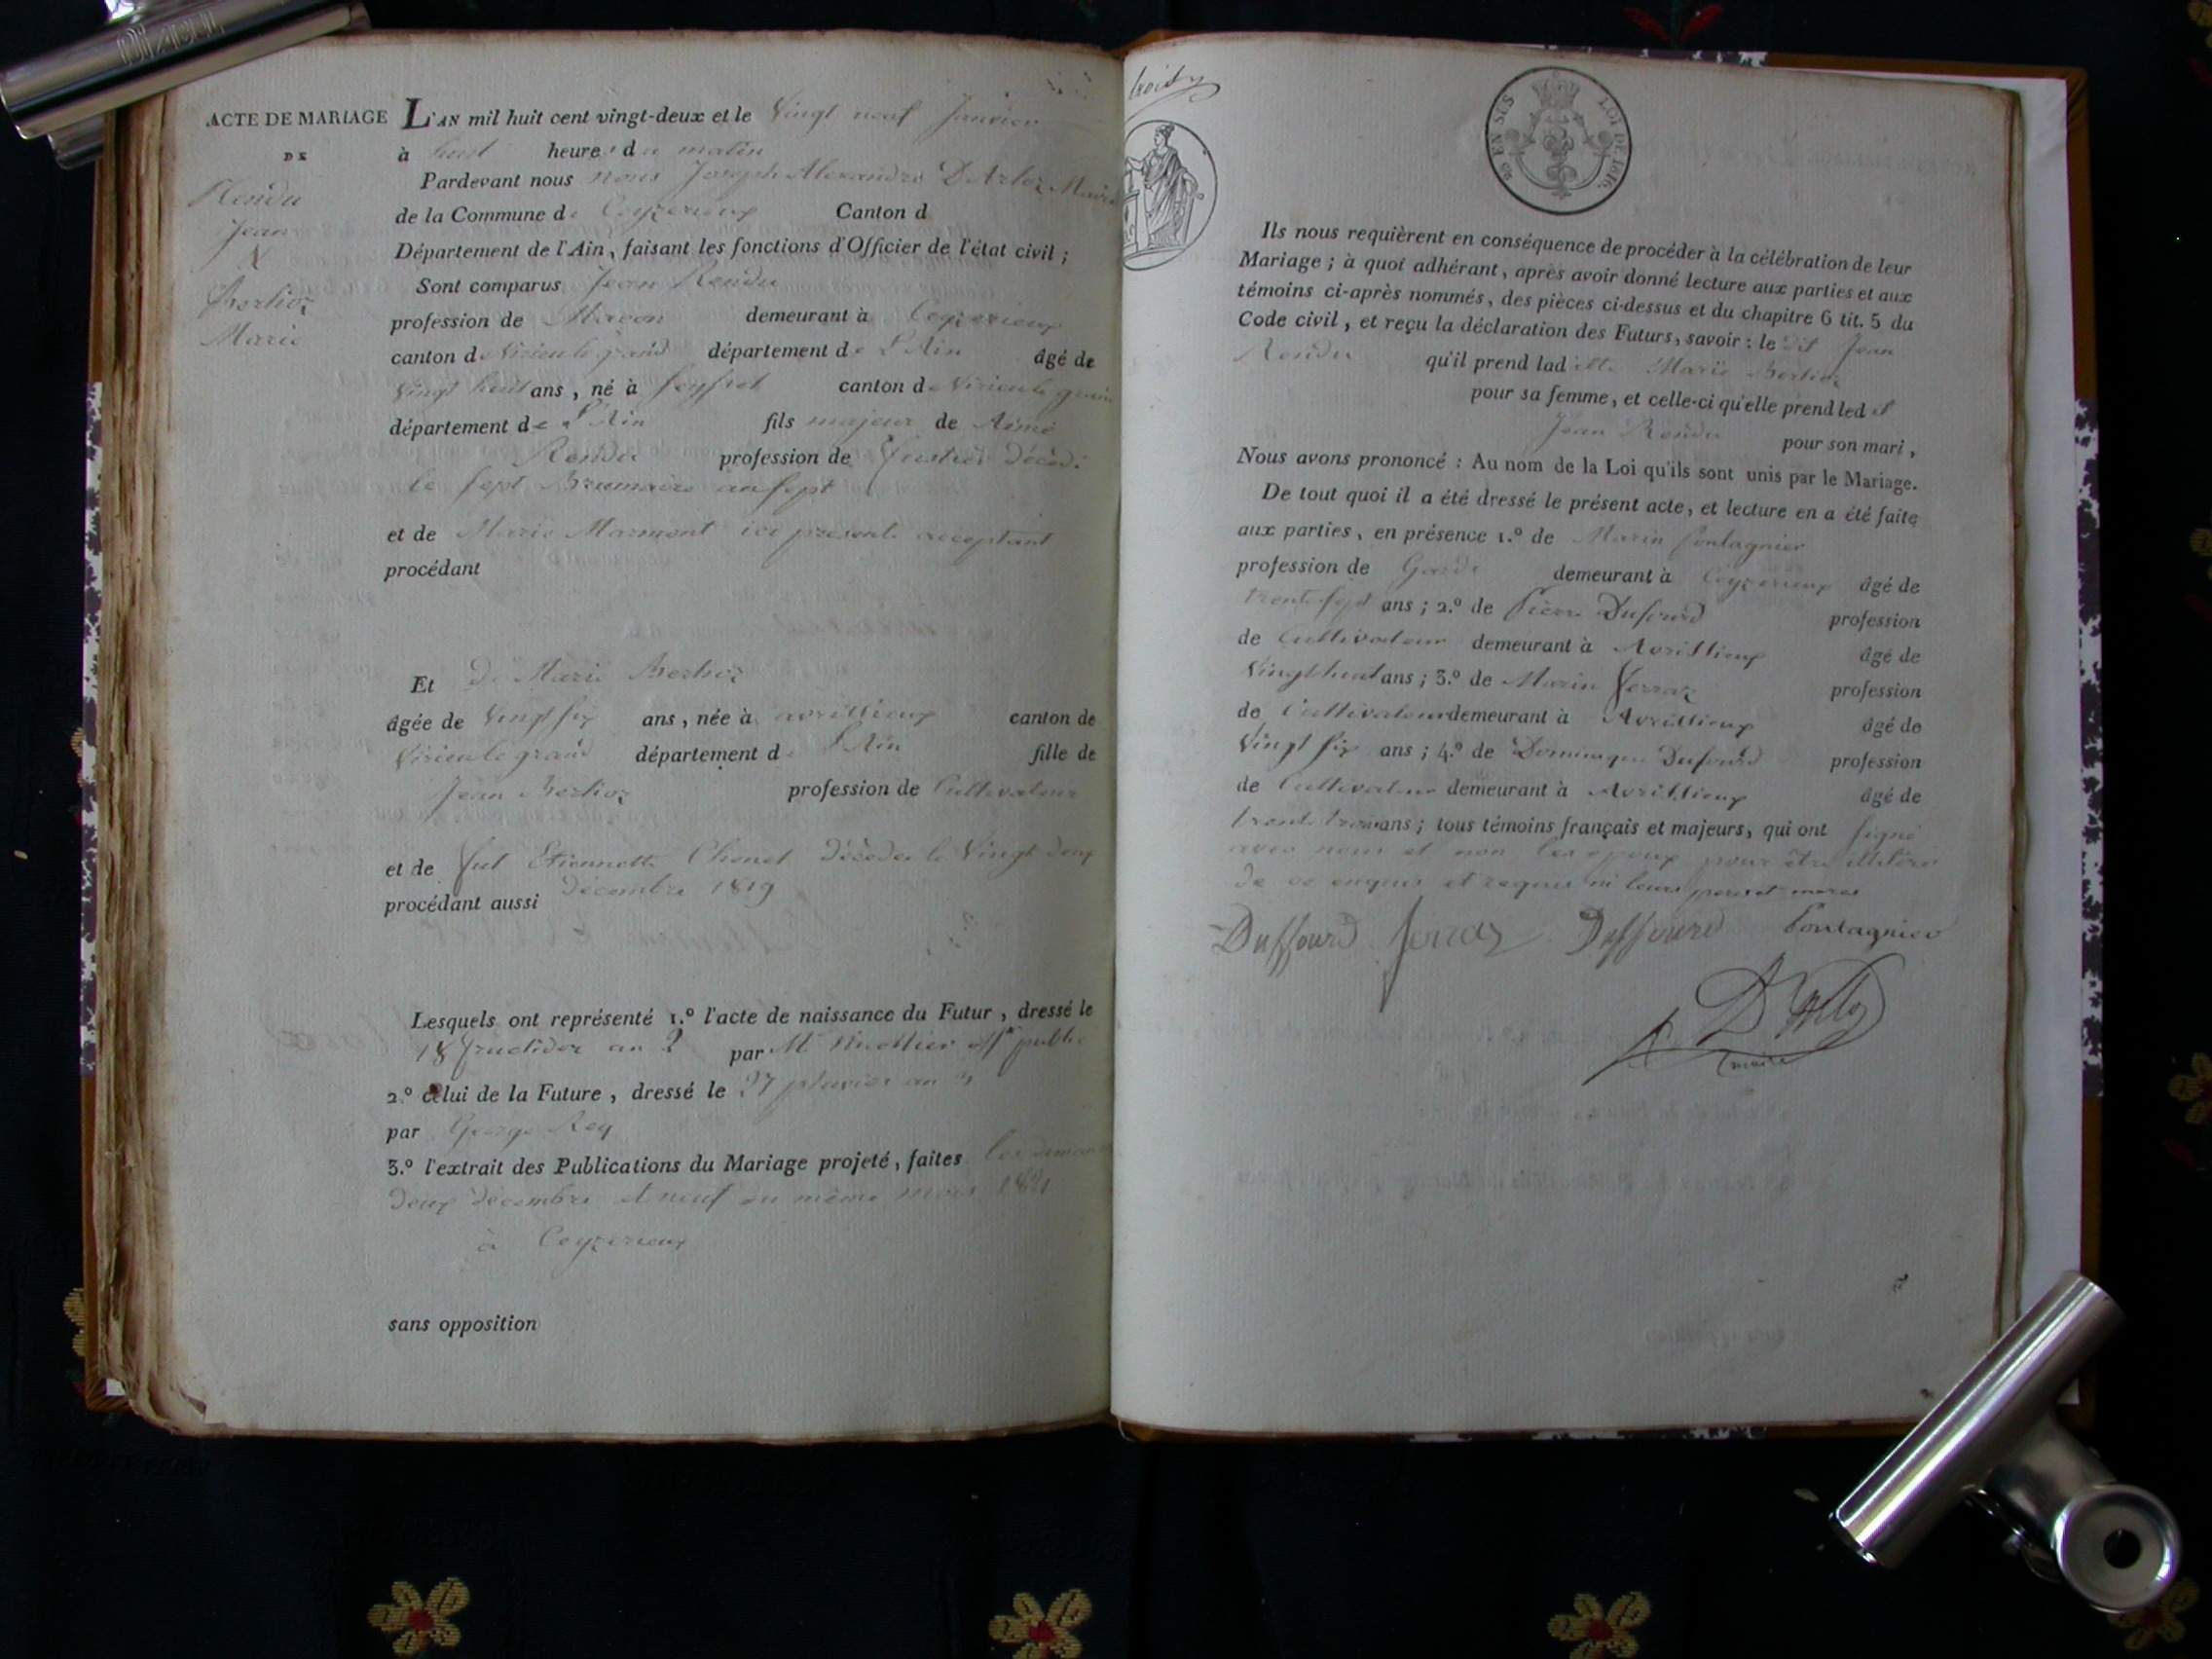 ACTE DE MARIAGE
DE
Rendu
Jean
&
Berlioz
Marie
L'AN mil huit cent vingt-deux et le Vingt neuf Janvier
à huit heures du matin
Pardevant nous nous Joseph Alexandre D'Arloz Maire
de la Commune de Ceyzerieux Canton d
Département de l'Ain, faisant les fonctions d'Officier de l'état civil ;
Sont comparus Jean Rendu
profession de Macon demeurant à Ceyzerieux
canton de Virieu le grand département de L'Ain âgé de
Vingt huit ans, né à canton de Virieu le grand
département de L'Ain fils majeur de Aimé
Rendu profession de décédé
le sept Brumaire an sept
et de Marie Marmont ici présente acceptant
procédant
Et de Marie Berlioz
âgée de Vingt six ans, née à avrissieux canton de
Virieu le grand département de L'Ain fille de
Jean Berlioz profession de Cultivateur
et de fut Etiennette Chenet décédée le Vingt deux
procédant aussi décembre 1819
Lesquels ont représenté 1.º l'acte de naissance du Futur, dressé le
18 fructidor an 2 par Mr offr public
2.º celui de la Future, dressé le 27 pluviose an
par George Rey
3.º l'extrait des Publications du Mariage projeté, faites les
deux décembre et neuf du même mois 1821
à Ceyzerieux
sans opposition
LOI DE 1816.
EN SUS
Ils nous requièrent en conséquence de procéder à la célébration de leur
Mariage ; à quoi adhérant, après avoir donné lecture aux parties et aux
témoins ci-après nommés, des pièces ci-dessus et du chapitre 6 tit. 5 du
Code civil, et reçu la déclaration des Futurs, savoir : le dit Jean
Rendu qu'il prend ladite Marie Berlioz
pour sa femme, et celle-ci qu'elle prend ledit
Jean Rendu pour son mari,
Nous avons prononcé : Au nom de la Loi qu'ils sont unis par le Mariage.
De tout quoi il a été dressé le présent acte, et lecture en a été faite
aux parties, en présence 1.º de Marin Pontagnier
profession de Garde demeurant à Ceyzerieux âgé de
trente sept ans ; 2.º de Pierre Dufourd profession
de Cultivateur demeurant à Avrissieux âgé de
Vingt huit ans ; 3.º de Marin Ferraz profession
de Cultivateur demeurant à Avrissieux âgé de
Vingt six ans ; 4.º de Dominique Dufourd profession
de Cultivateur demeurant à Avrissieux âgé de
trente trois ans ; tous témoins français et majeurs, qui ont signé
avec nous et non les epoux pour être illitéré
de ce enquis et requis ni leurs peres et meres
Duffourd Ferraz Duffourd Pontagnier
maire